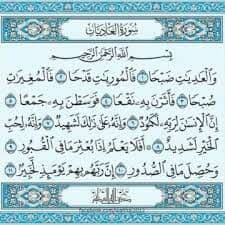 سُورَةُ العَادِيَاتِ
بِسْمِ اللَّهِ الرَّحْمَٰنِ الرَّحِيمِ
وَالْعَادِيَاتِ ضَبْحًا ١ فَالْمُورِيَاتِ قَدْحًا ٢ فَالْمُغِيرَاتِ
صُبْحًا ٣ فَأَثَرْنَ بِهِ نَقْعًا ٤ فَوَسَطْنَ بِهِ جَمْعًا ٥
إِنَّ الْإِنسَانَ لِرَبِّهِ لَكَنُودٌ ٦ وَإِنَّهُ عَلَىٰ ذَٰلِكَ لَشَهِيدٌ ٧ وَإِنَّهُ لِحُبِّ
الْخَيْرِ لَشَدِيدٌ ٨ أَفَلَا يَعْلَمُ إِذَا بُعْثِرَ مَا فِي الْقُبُورِ ٩
وَحُصِّلَ مَا فِي الصُّدُورِ ١٠ إِنَّ رَبَّهُم بِهِمْ يَوْمَئِذٍ لَّخَبِيرٌ ١١